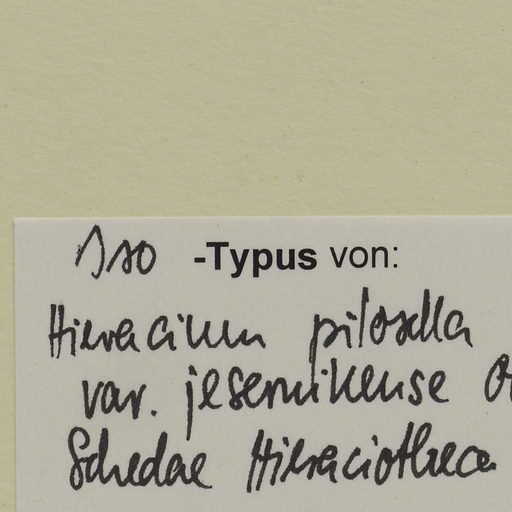 Iso -Typus von:
Hieracium pilosella
var. jesenikense
Schedae Hieraciotheca